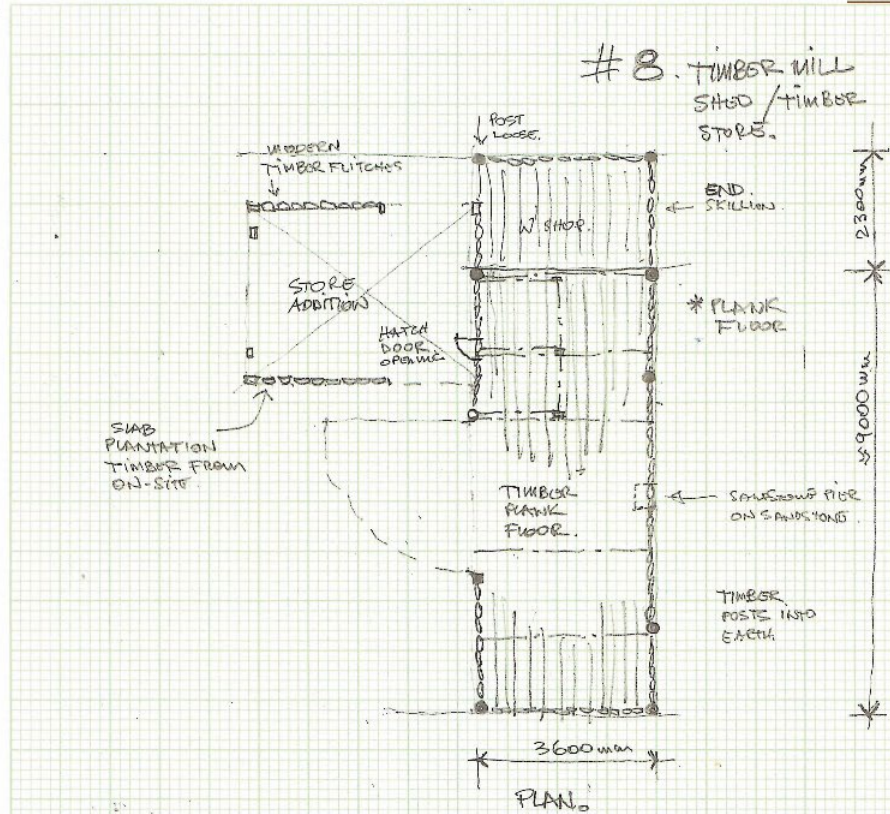 # 8. TIMBER MILL
SHED / TIMBER
STORE.
POST
LOOSE.
MODERN
TIMBER FLITCHES
END.
SKILLION.
2300mm
W'SHOP.
STORE
ADDITION
* PLANK
FLOOR
HATCH
DOOR
OPENING
≈9000mm
SLAB
PLANTATION
TIMBER FROM
ON-SITE.
TIMBER
PLANK
FLOOR.
SANDSTONE PIER
ON SANDSTONE.
TIMBER
POSTS INTO
EARTH.
3600mm
PLAN.